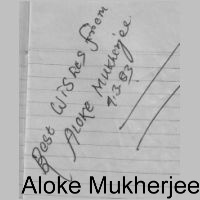 Best Wishes from
Aloke Mukherjee
7.3.83
Aloke Mukherjee